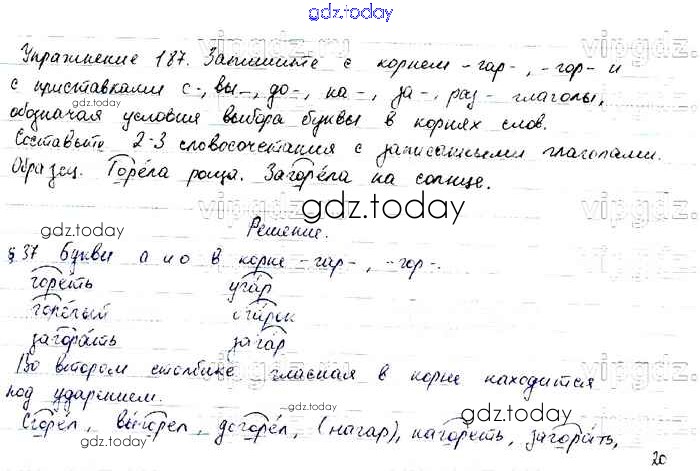 gdz.today
Упражнение 187. Запишите с корнем -гар-, -гор- и
с приставками с-, вы-, до-, на-, за-, раз- глаголы,
gdz.today
обозначая условия выбора буквы в корнях слов.
Составьте 2-3 словосочетания с записанными глаголами.
gdz.today
Образец. Горела роща. Загорела на солнце.
gdz.today
vipgdz.ru
gdz.today
Решение.
§37 Буквы а и о в корне -гар-, -гор-.
gdz.today
гореть угар
горелый огарок
загорать загар
Во втором столбике гласная в корне находится
под ударением.
gdz.today
gdz.today
Сгорел, выгорел, догорел, (нагар), нагореть, загорать,
gdz.today
20